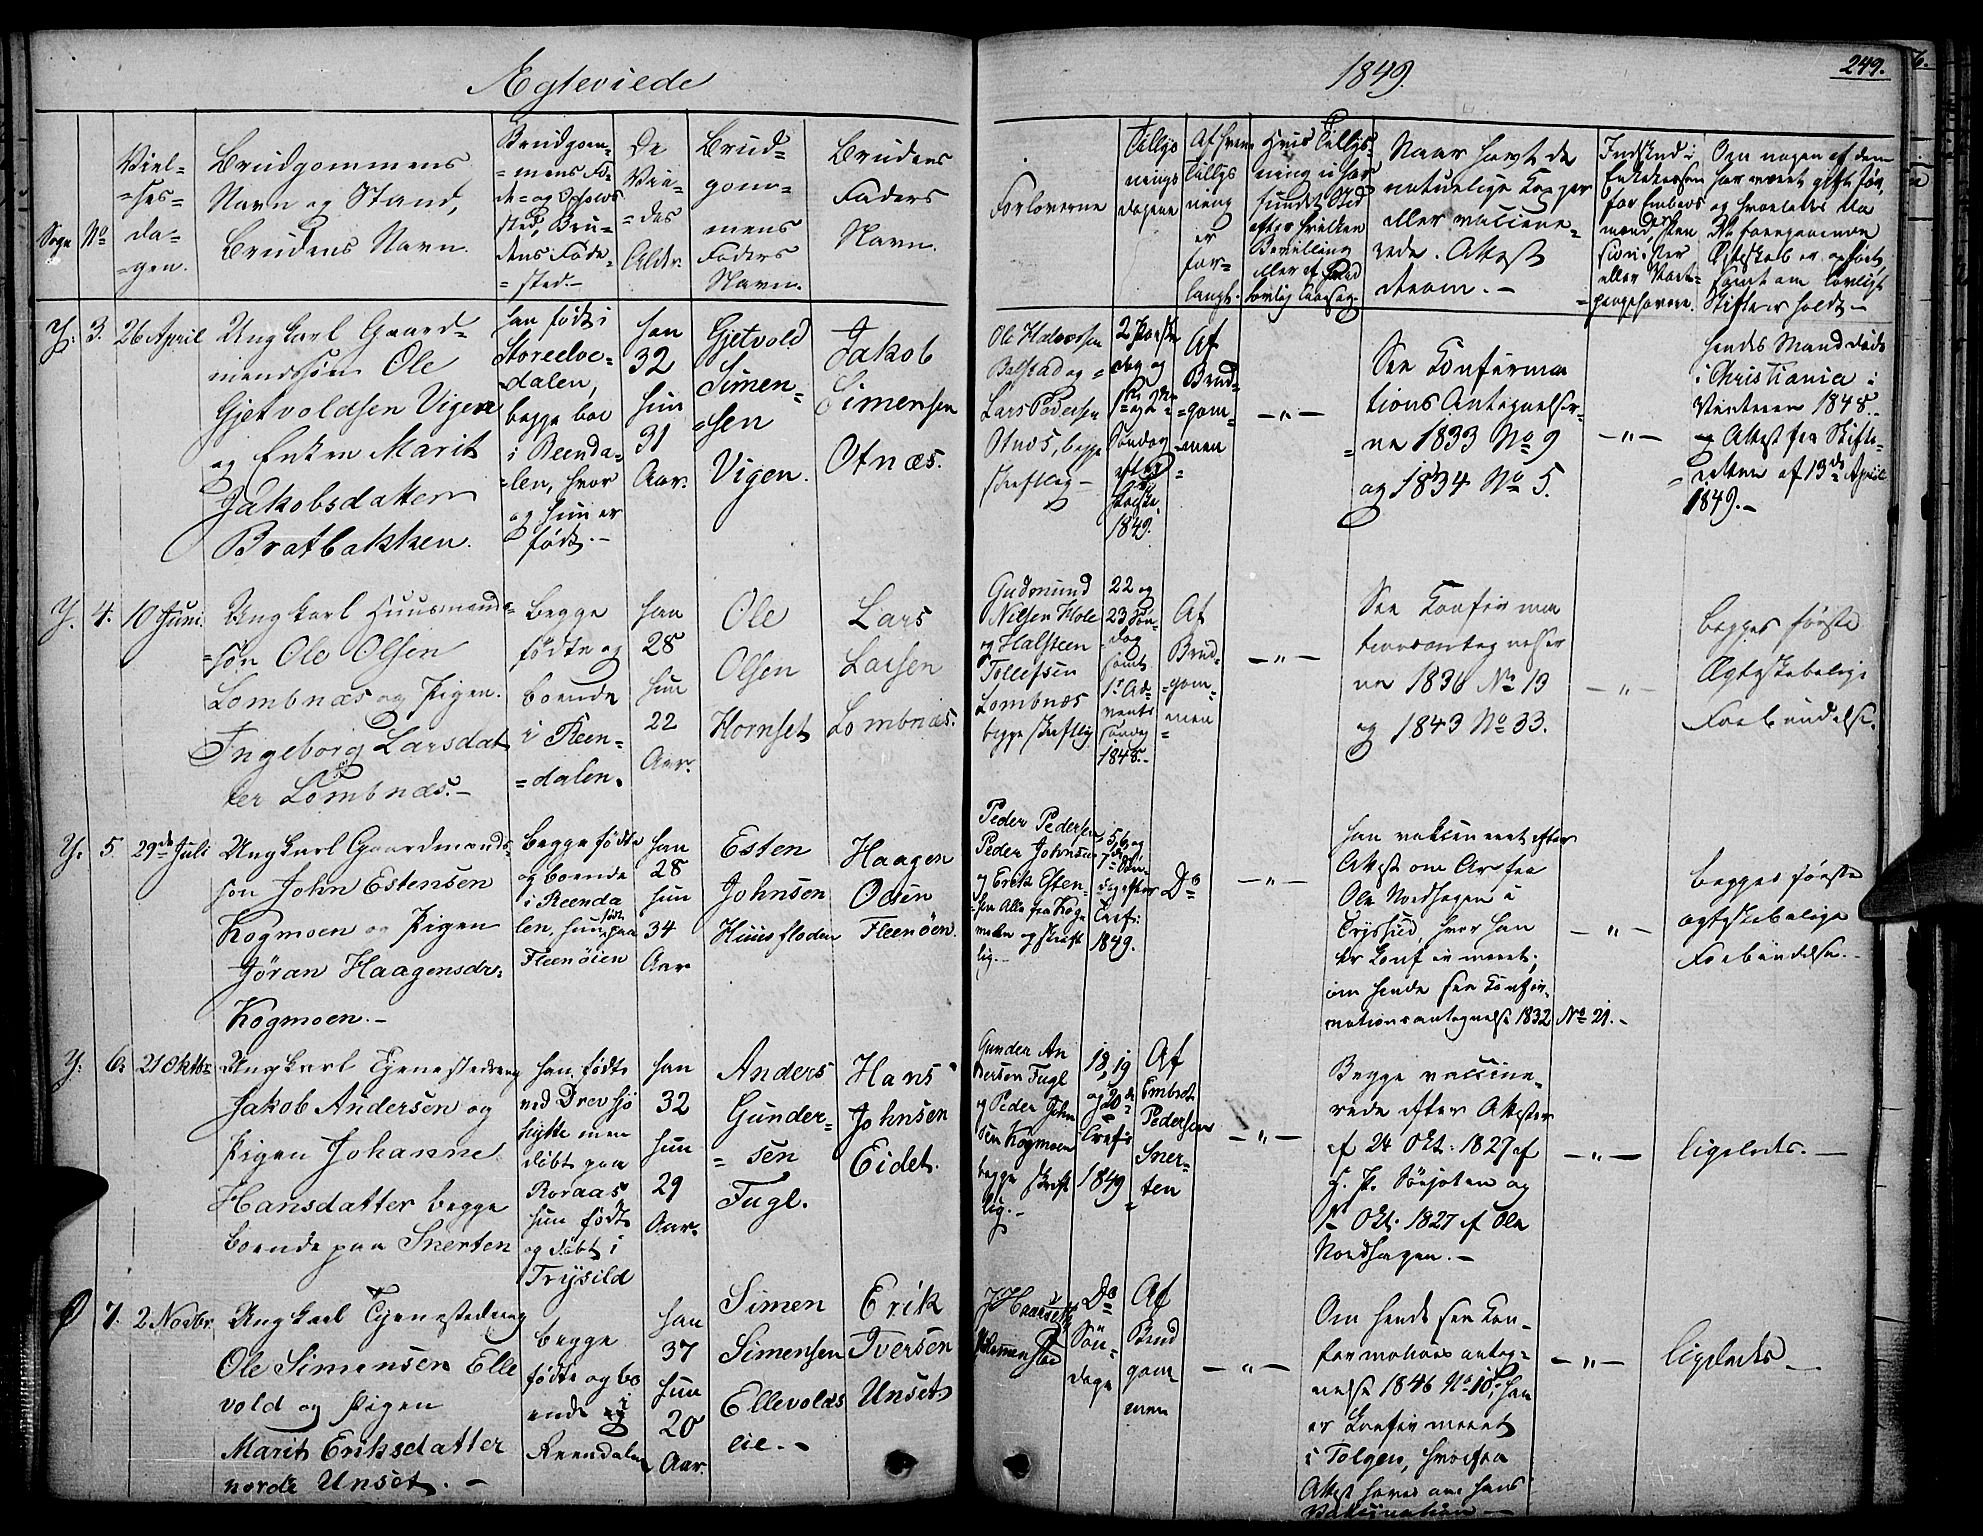 Ægteviede
1849.
249.
Sogn
No
Viel-
=ses-
da-
=gen.
Brudgommens
Navn og Stand,
Brudens Navn.
Brudgom-
=mens Fø-
de= og Opholds
sted, Bru-
dens Føde-
=sted.-
De
Vie-
=des
Alder.
Brud=
gom=
mens
Faders
Navn.
Brudens
Faders
Navn.
Forloverne
Tillys
nings
dagene
Af hvem
Tillys
ning
er
for-
langt.
Hvis Tillys-
ning ei har
fundet Sted
efter hvilken
Bevilling
eller af hvad
lovlig Aarsag.
Naar havt de
naturlige Kopper
eller vaccine=
rede. Attest
derom.-
Indskud i
Enkekassen
for Embeds
mænd,
eller
Om nogen af dem
har været gift før,
og hvorledes da
De foregaaende
Ægteskab er ophørt,
samt om lovligt
Skifte er holdt-
Y: 3. 26 April
Ungkarl Gaard-
mandssøn Ole
Gjetvoldsen Vigen
og Enken Marit
Jakobsdatter
Bratbakken.
han født i
Storeelve-
=dalen,
begge boe
i Reenda-
=len, hvor
og hun er
født.-
han
32
hun
31
Aar.
Gjetvold
Simen=
=sen
Vigen.
Jakob
Simensen
Otnæs.
Ole Halvorsen
Bolstad og
Lars Pedersen
Otnæs, begge
skriftlig-
1849.
Af
Brud=
=gom-
=men
-"-
See Konfirma
tions Antegnelser-
=ne 1833 No 9
og 1834 No 5.
-"-
hendes Mand døde
i Christiania i
Vinteren 1848.
og Attest fra Skifte-
=retten af 13de April
1849.-
Y. 4. 10 Juni.
Ungkarl Huusmands-
=søn Ole Olsen
Lombnæs og Pigen
Ingeborg Larsdat
ter Lombnæs.-
begge
fødte og
boende
i Reen=
=dalen.
han
28
hun
22
Aar.
Ole
Olsen
Hornset
Lars
Larsen
Lombnæs.
Gudmund
Nilsen Hole
og Halsteen
Tollefsen
Lombnæs
begge skriftlig
22 og
23 Søn-
dag
samt
1ste Ad-
vents
søndag
1848.-
Af
Brud-
=gom-
men
-"-
See Konfirma
tionsantegnelser
ne 1836 No 13
og 1843 No 33.
-"-
begges første
Ægteskabelige
Forbindelse.
Y. 5. 29de Juli
Ungkarl Gaardmands-
søn John Estensen
Kogmoen og Pigen
Jøran Haagensdr-
Kogmoen.-
begge fødte
og boende
i Reenda
len, hun født paa
Fleenøien
han
28
hun
34
Aar
Esten
Johnsen
Huusfloden
Haagen
Odsen
Fleenøen.
Peder Pedersen
Peder Johnsen
og Erik Esten-
sen Alle fra Kog
moen og skrift
lig.-
5, 6 og
7de Søn-
dag efter
Tref:
1849.
Do
-"-
han vaksineret efter
Attest om Ar fra
Ole Nordhagen i
Trysild, hvor han
er Konfirmeret;
om hende see Konfir-
mationsantegnelse 1832 No 21.-
-"-
begges første
ægteskabelige
Forbindelse.-
Y: 6. 21 Oktbr
Ungkarl Tjenestedreng
Jakob Andersen og
Pigen Johanne
Hansdatter begge
boende paa Snerten
han født
ved Drevsjø
hytte men
døbt paa
Roraas
hun født
og døbt i
Trysild
han
32
hun
29
Aar.
Anders
Gunder-
=sen
Fugl.
Hans
Johnsen
Eidet.
Gunder An
dersen Fugl
og Peder John
sen Kogmoen
begge skrift
lig.-
18, 19
og 20de
Tref:
1849
Af
Embret
Pedersen
Sner-
ten
-"-
Begge vaccine-
rede efter Attester
af 24 Okt: 1827 af
og
Okt. 1827 af Ole
Nordhagen.-
-"-
ligeledes.-
7. 2 Novbr.
Ungkarl Tjenestedreng
Ole Simensen Elle
vold og Pigen
Marit Eriksdatter
nordre Unset.-
begge
fødte og bo
ende i
Reendalen
han
37
hun
20
Aar.
Simen
Simensen
Ellevolds
eie.-
Erik
Iversen
Unset
Do
Søn-
dage
Af
Brud
gom
men
-"-
Om hende see Kon-
firmations anteg-
nelse 1846 No 10; han
er Konfirmeret
i Tolgen, hvorfra
Attest haves om hans
Vaksination-
-"-
ligeledes-